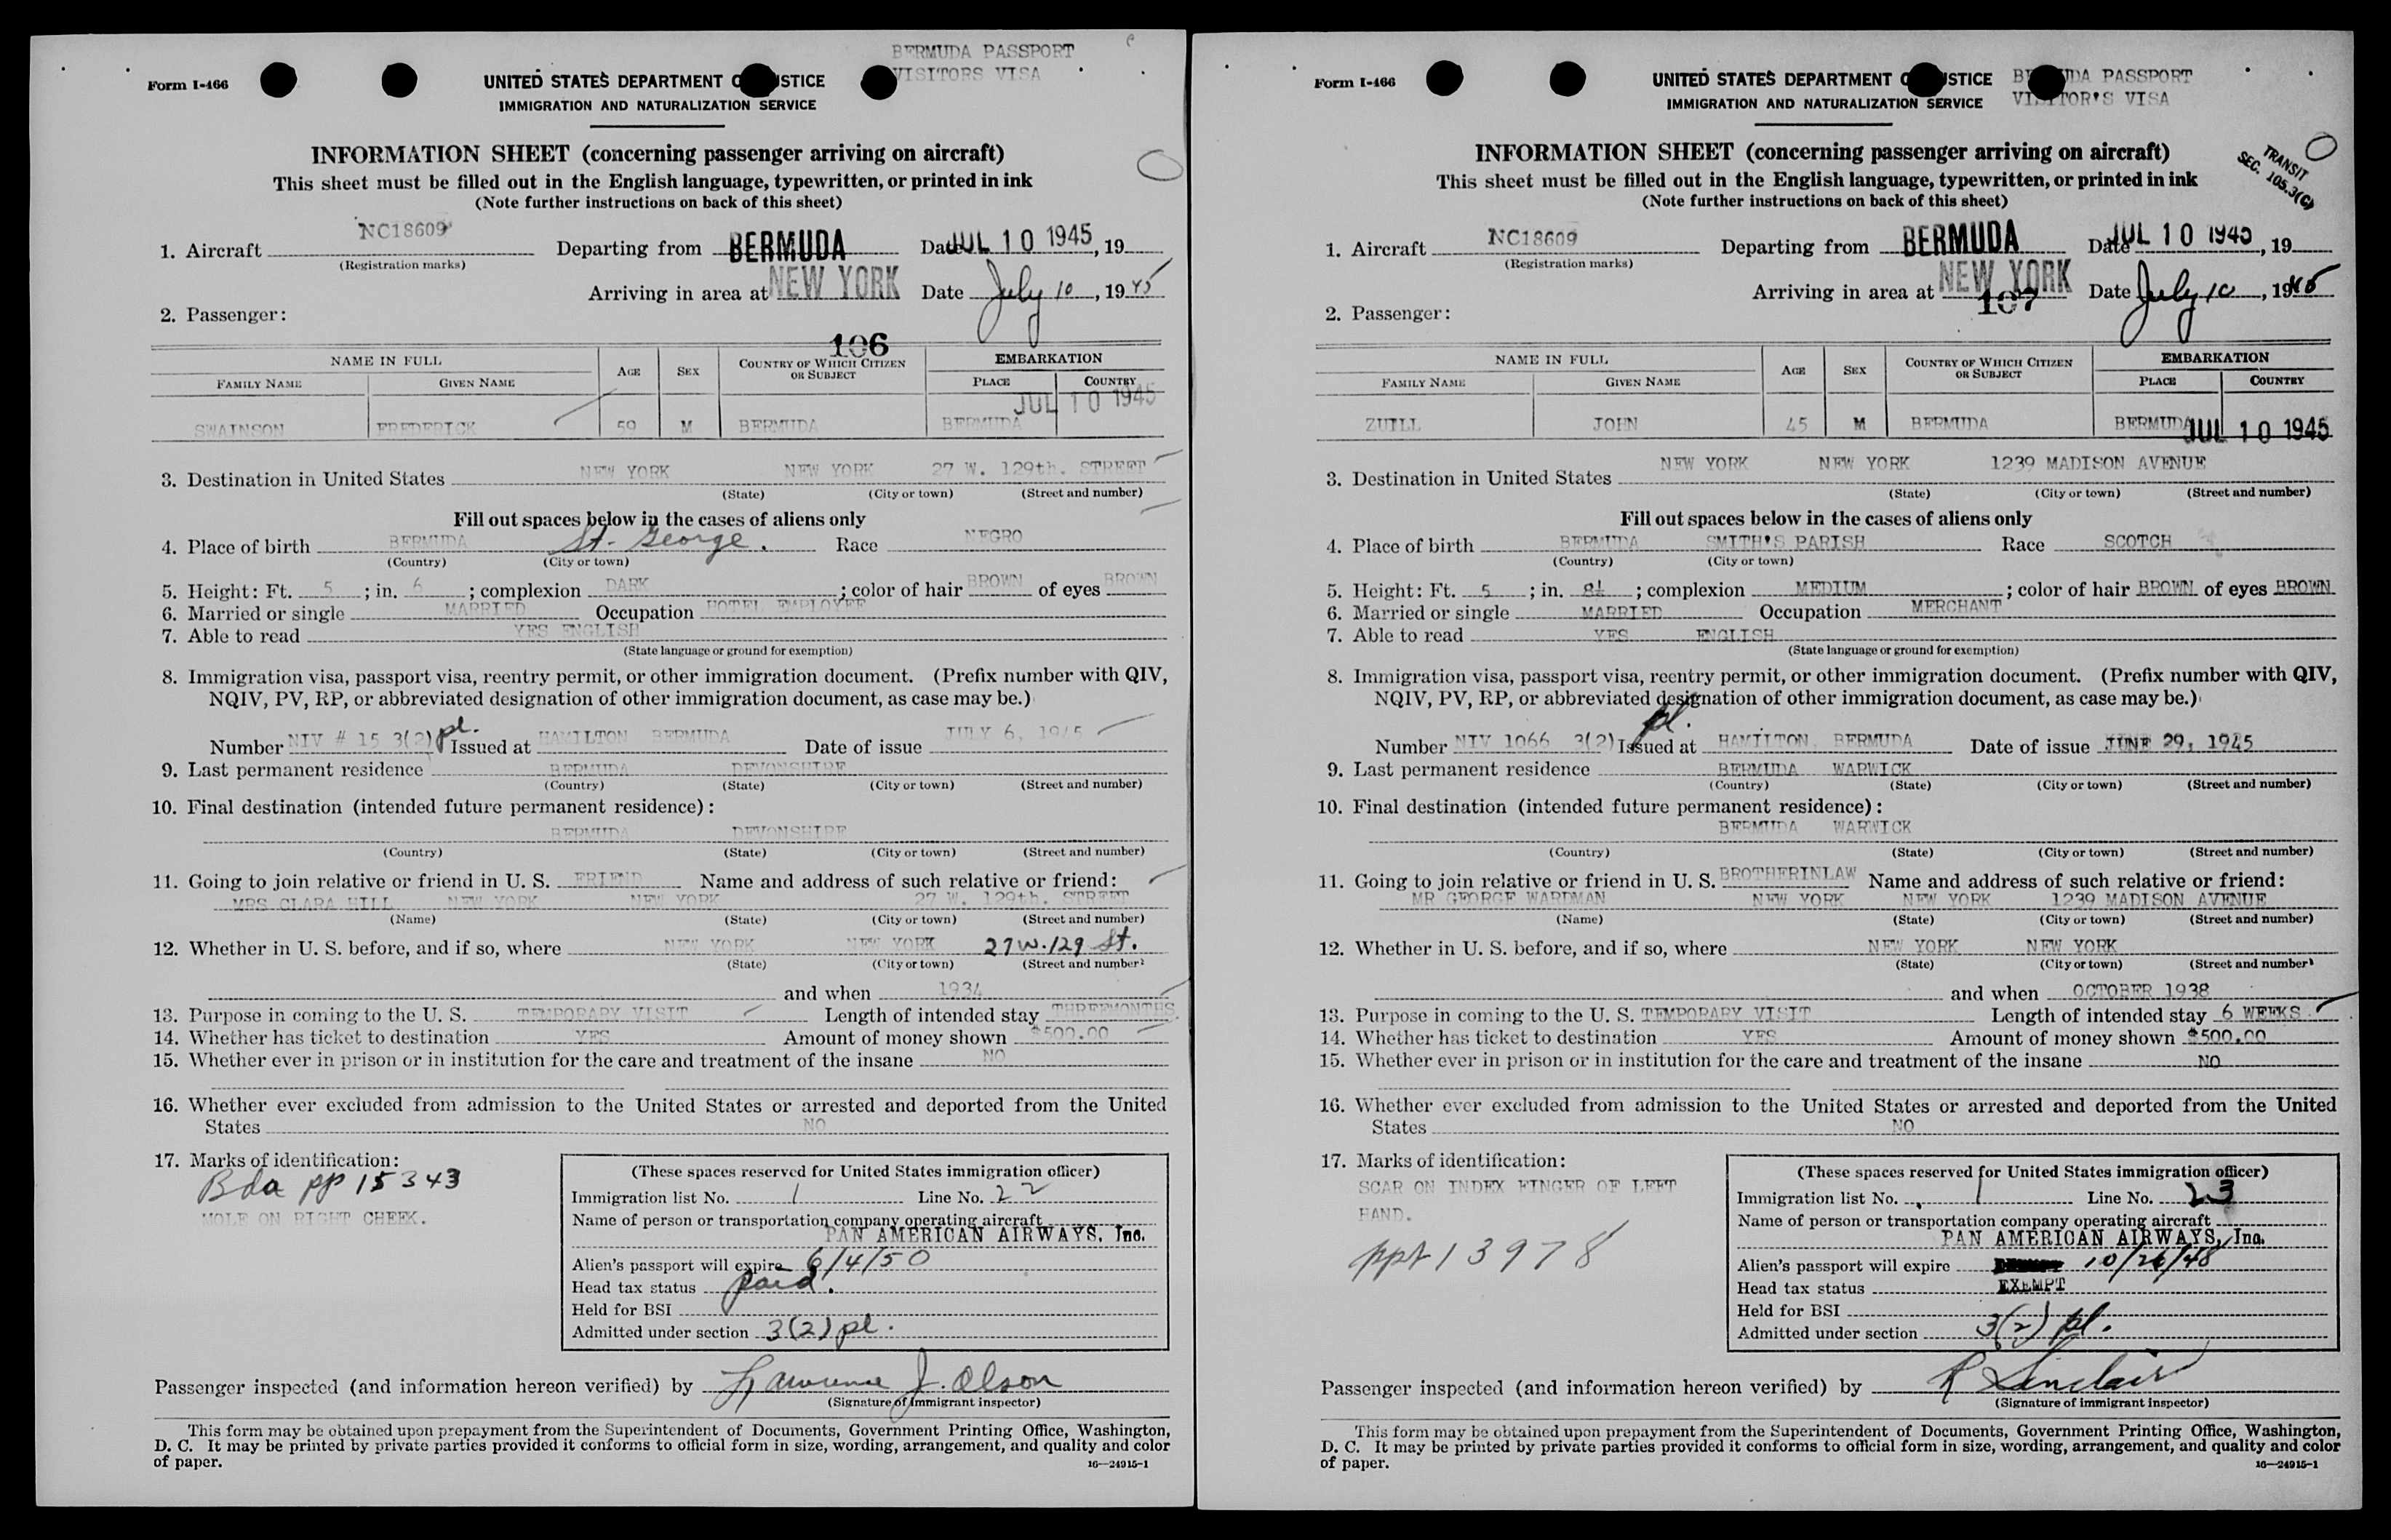 BERMUDA PASSPORT
VISITORS VISA
Form I-466
UNITED STATES DEPARTMENT OF JUSTICE
IMMIGRATION AND NATURALIZATION SERVICE
INFORMATION SHEET (concerning passenger arriving on aircraft)
This sheet must be filled out in the English language, typewritten, or printed in ink
(Note further instructions on back of this sheet)
1. Aircraft NC18609 Departing from BERMUDA Date JUL 10 1945, 19
(Registration marks)
Arriving in area at NEW YORK Date July 10, 1945
2. Passenger:
106
NAME IN FULL AGE SEX COUNTRY OF WHICH CITIZEN OR SUBJECT EMBARKATION
FAMILY NAME GIVEN NAME PLACE COUNTRY
JUL 10 1945
SWAINSON FREDERICK 59 M BERMUDA BERMUDA
3. Destination in United States NEW YORK NEW YORK 27 W. 129th. STREET
(State) (City or town) (Street and number)
Fill out spaces below in the cases of aliens only
4. Place of birth BERMUDA St. George. Race NEGRO
(Country) (City or town)
5. Height: Ft. 5; in. 6; complexion DARK; color of hair BROWN of eyes BROWN
6. Married or single MARRIED Occupation HOTEL EMPLOYEE
7. Able to read YES ENGLISH
(State language or ground for exemption)
8. Immigration visa, passport visa, reentry permit, or other immigration document. (Prefix number with QIV,
NQIV, PV, RP, or abbreviated designation of other immigration document, as case may be.)
Number NIV # 15 3(2) pl. Issued at HAMILTON BERMUDA Date of issue JULY 6, 1945
9. Last permanent residence BERMUDA DEVONSHIRE
(Country) (State) (City or town) (Street and number)
10. Final destination (intended future permanent residence):
BERMUDA DEVONSHIRE
(Country) (State) (City or town) (Street and number)
11. Going to join relative or friend in U. S. FRIEND Name and address of such relative or friend:
MRS CLARA HILL NEW YORK NEW YORK 27 W. 129th. STREET
(Name) (State) (City or town) (Street and number)
12. Whether in U. S. before, and if so, where NEW YORK NEW YORK 27 W. 129 St.
(State) (City or town) (Street and number)
and when 1934
13. Purpose in coming to the U. S. TEMPORARY VISIT Length of intended stay THREEMONTHS
14. Whether has ticket to destination YES Amount of money shown $500.00
15. Whether ever in prison or in institution for the care and treatment of the insane NO
16. Whether ever excluded from admission to the United States or arrested and deported from the United
States NO
17. Marks of identification:
Bda pp 15343
MOLE ON RIGHT CHEEK.
(These spaces reserved for United States immigration officer)
Immigration list No. 1 Line No. 22
Name of person or transportation company operating aircraft
PAN AMERICAN AIRWAYS, Inc.
Alien's passport will expire 6/4/50
Head tax status paid.
Held for BSI
Admitted under section 3(2) pl.
Passenger inspected (and information hereon verified) by Lawrence J. Olson
(Signature of immigrant inspector)
This form may be obtained upon prepayment from the Superintendent of Documents, Government Printing Office, Washington,
D. C. It may be printed by private parties provided it conforms to official form in size, wording, arrangement, and quality and color
of paper.
16—24915-1
Form I-466
UNITED STATES DEPARTMENT OF JUSTICE
IMMIGRATION AND NATURALIZATION SERVICE
BERMUDA PASSPORT
VISITOR'S VISA
INFORMATION SHEET (concerning passenger arriving on aircraft)
TRANSIT
SEC. 105.3(C)
This sheet must be filled out in the English language, typewritten, or printed in ink
(Note further instructions on back of this sheet)
1. Aircraft NC18609 Departing from BERMUDA Date JUL 10 1945, 19
(Registration marks)
Arriving in area at NEW YORK Date July 10, 1945
107
2. Passenger:
NAME IN FULL AGE SEX COUNTRY OF WHICH CITIZEN OR SUBJECT EMBARKATION
FAMILY NAME GIVEN NAME PLACE COUNTRY
ZUILL JOHN 45 M BERMUDA BERMUDA JUL 10 1945
3. Destination in United States NEW YORK NEW YORK 1239 MADISON AVENUE
(State) (City or town) (Street and number)
Fill out spaces below in the cases of aliens only
4. Place of birth BERMUDA SMITH'S PARISH Race SCOTCH
(Country) (City or town)
5. Height: Ft. 5; in. 8½; complexion MEDIUM; color of hair BROWN of eyes BROWN
6. Married or single MARRIED Occupation MERCHANT
7. Able to read YES ENGLISH
(State language or ground for exemption)
8. Immigration visa, passport visa, reentry permit, or other immigration document. (Prefix number with QIV,
NQIV, PV, RP, or abbreviated designation of other immigration document, as case may be.)
Number NIV 1066 3(2) pl. Issued at HAMILTON, BERMUDA Date of issue JUNE 29, 1945
9. Last permanent residence BERMUDA WARWICK
(Country) (State) (City or town) (Street and number)
10. Final destination (intended future permanent residence):
BERMUDA WARWICK
(Country) (State) (City or town) (Street and number)
11. Going to join relative or friend in U. S. BROTHERINLAW Name and address of such relative or friend:
MR GEORGE WARDMAN NEW YORK NEW YORK 1239 MADISON AVENUE
(Name) (State) (City or town) (Street and number)
12. Whether in U. S. before, and if so, where NEW YORK NEW YORK
(State) (City or town) (Street and number)
and when OCTOBER 1938
13. Purpose in coming to the U. S. TEMPORARY VISIT Length of intended stay 6 WEEKS
14. Whether has ticket to destination YES Amount of money shown $500.00
15. Whether ever in prison or in institution for the care and treatment of the insane NO
16. Whether ever excluded from admission to the United States or arrested and deported from the United
States NO
17. Marks of identification:
SCAR ON INDEX FINGER OF LEFT
HAND.
ppt 13978
(These spaces reserved for United States immigration officer)
Immigration list No. 1 Line No. 23
Name of person or transportation company operating aircraft
PAN AMERICAN AIRWAYS, Inc.
Alien's passport will expire 10/26/48
Head tax status EXEMPT
Held for BSI
Admitted under section 3(2) pl.
Passenger inspected (and information hereon verified) by R Sinclair
(Signature of immigrant inspector)
This form may be obtained upon prepayment from the Superintendent of Documents, Government Printing Office, Washington,
D. C. It may be printed by private parties provided it conforms to official form in size, wording, arrangement, and quality and color
of paper.
16—24915-1